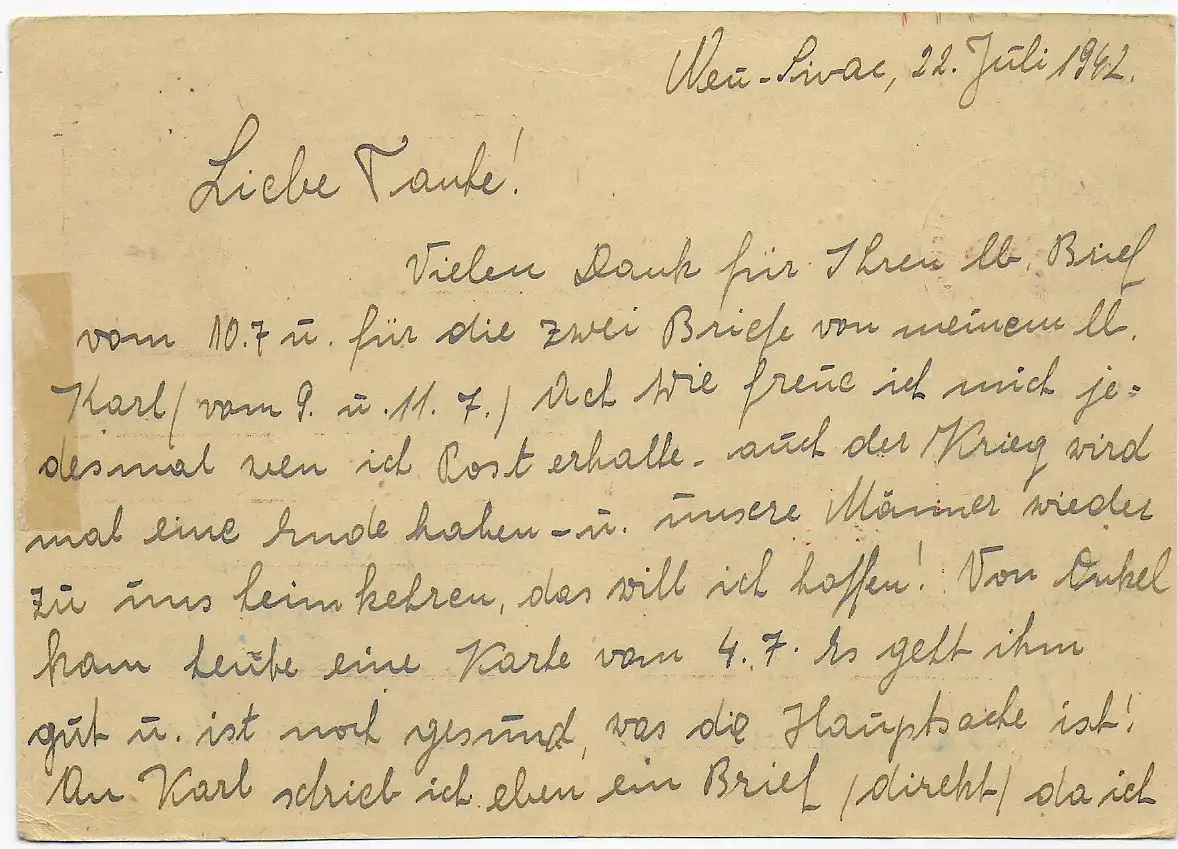 Neu-Sivac, 22. Juli 1942.
Liebe Tante!
Vielen Dank für Ihren lb. Brief
vom 10.7 u. für die zwei Briefe von meinem lb.
Karl (vom 9. u. 11. 7.) Ach wie freue ich mich je=
desmal wen ich Post erhalte - auch der Krieg wird
mal eine Ende haben - u. unsere Männer wieder
zu uns heimkehren, das will ich hoffen! Von Onkel
kam heute eine Karte vom 4. 7. Es geht ihm
gut u. ist noch gesund, was die Hauptsache ist!
An Karl schrieb ich eben ein Brief (direkt) da ich